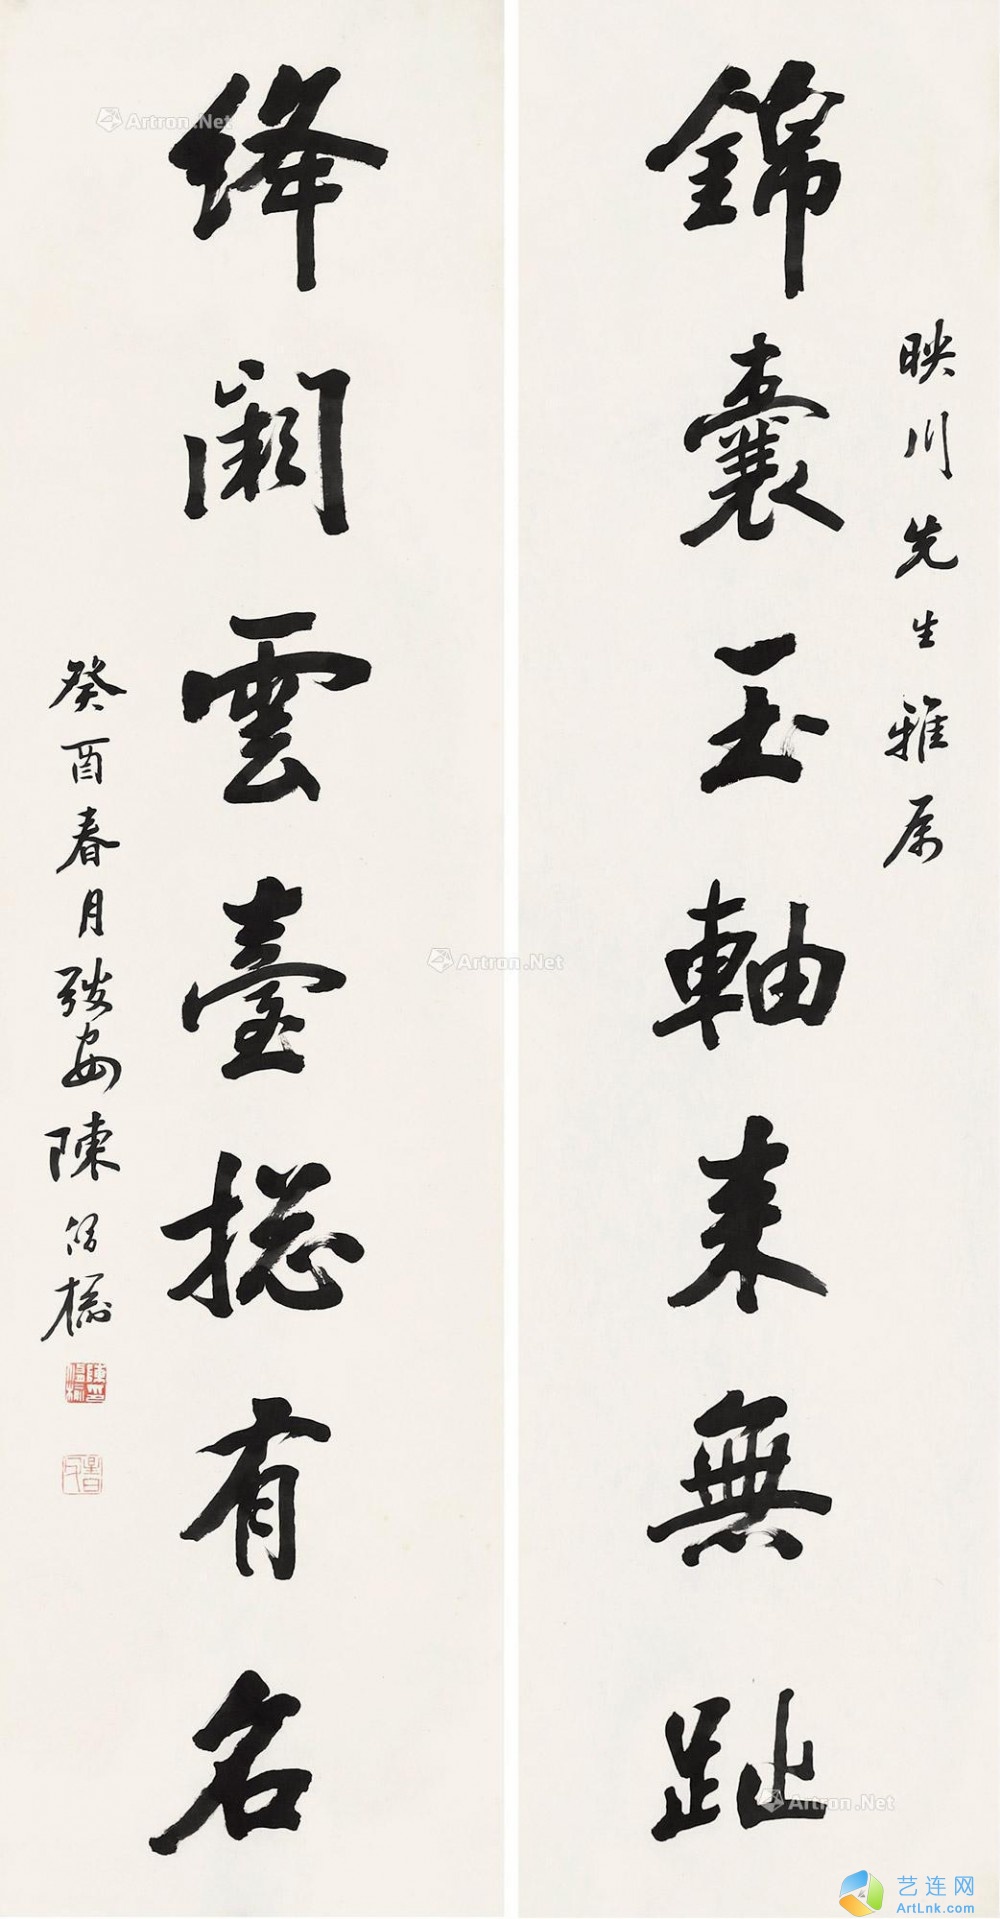 映川先生雅属
錦囊玉軸来無趾
絳闕雲臺捴有名
癸酉春月弢安陳
Artron.Net
Artron.Net
Artron.Net
艺连网
ArtLnk.com